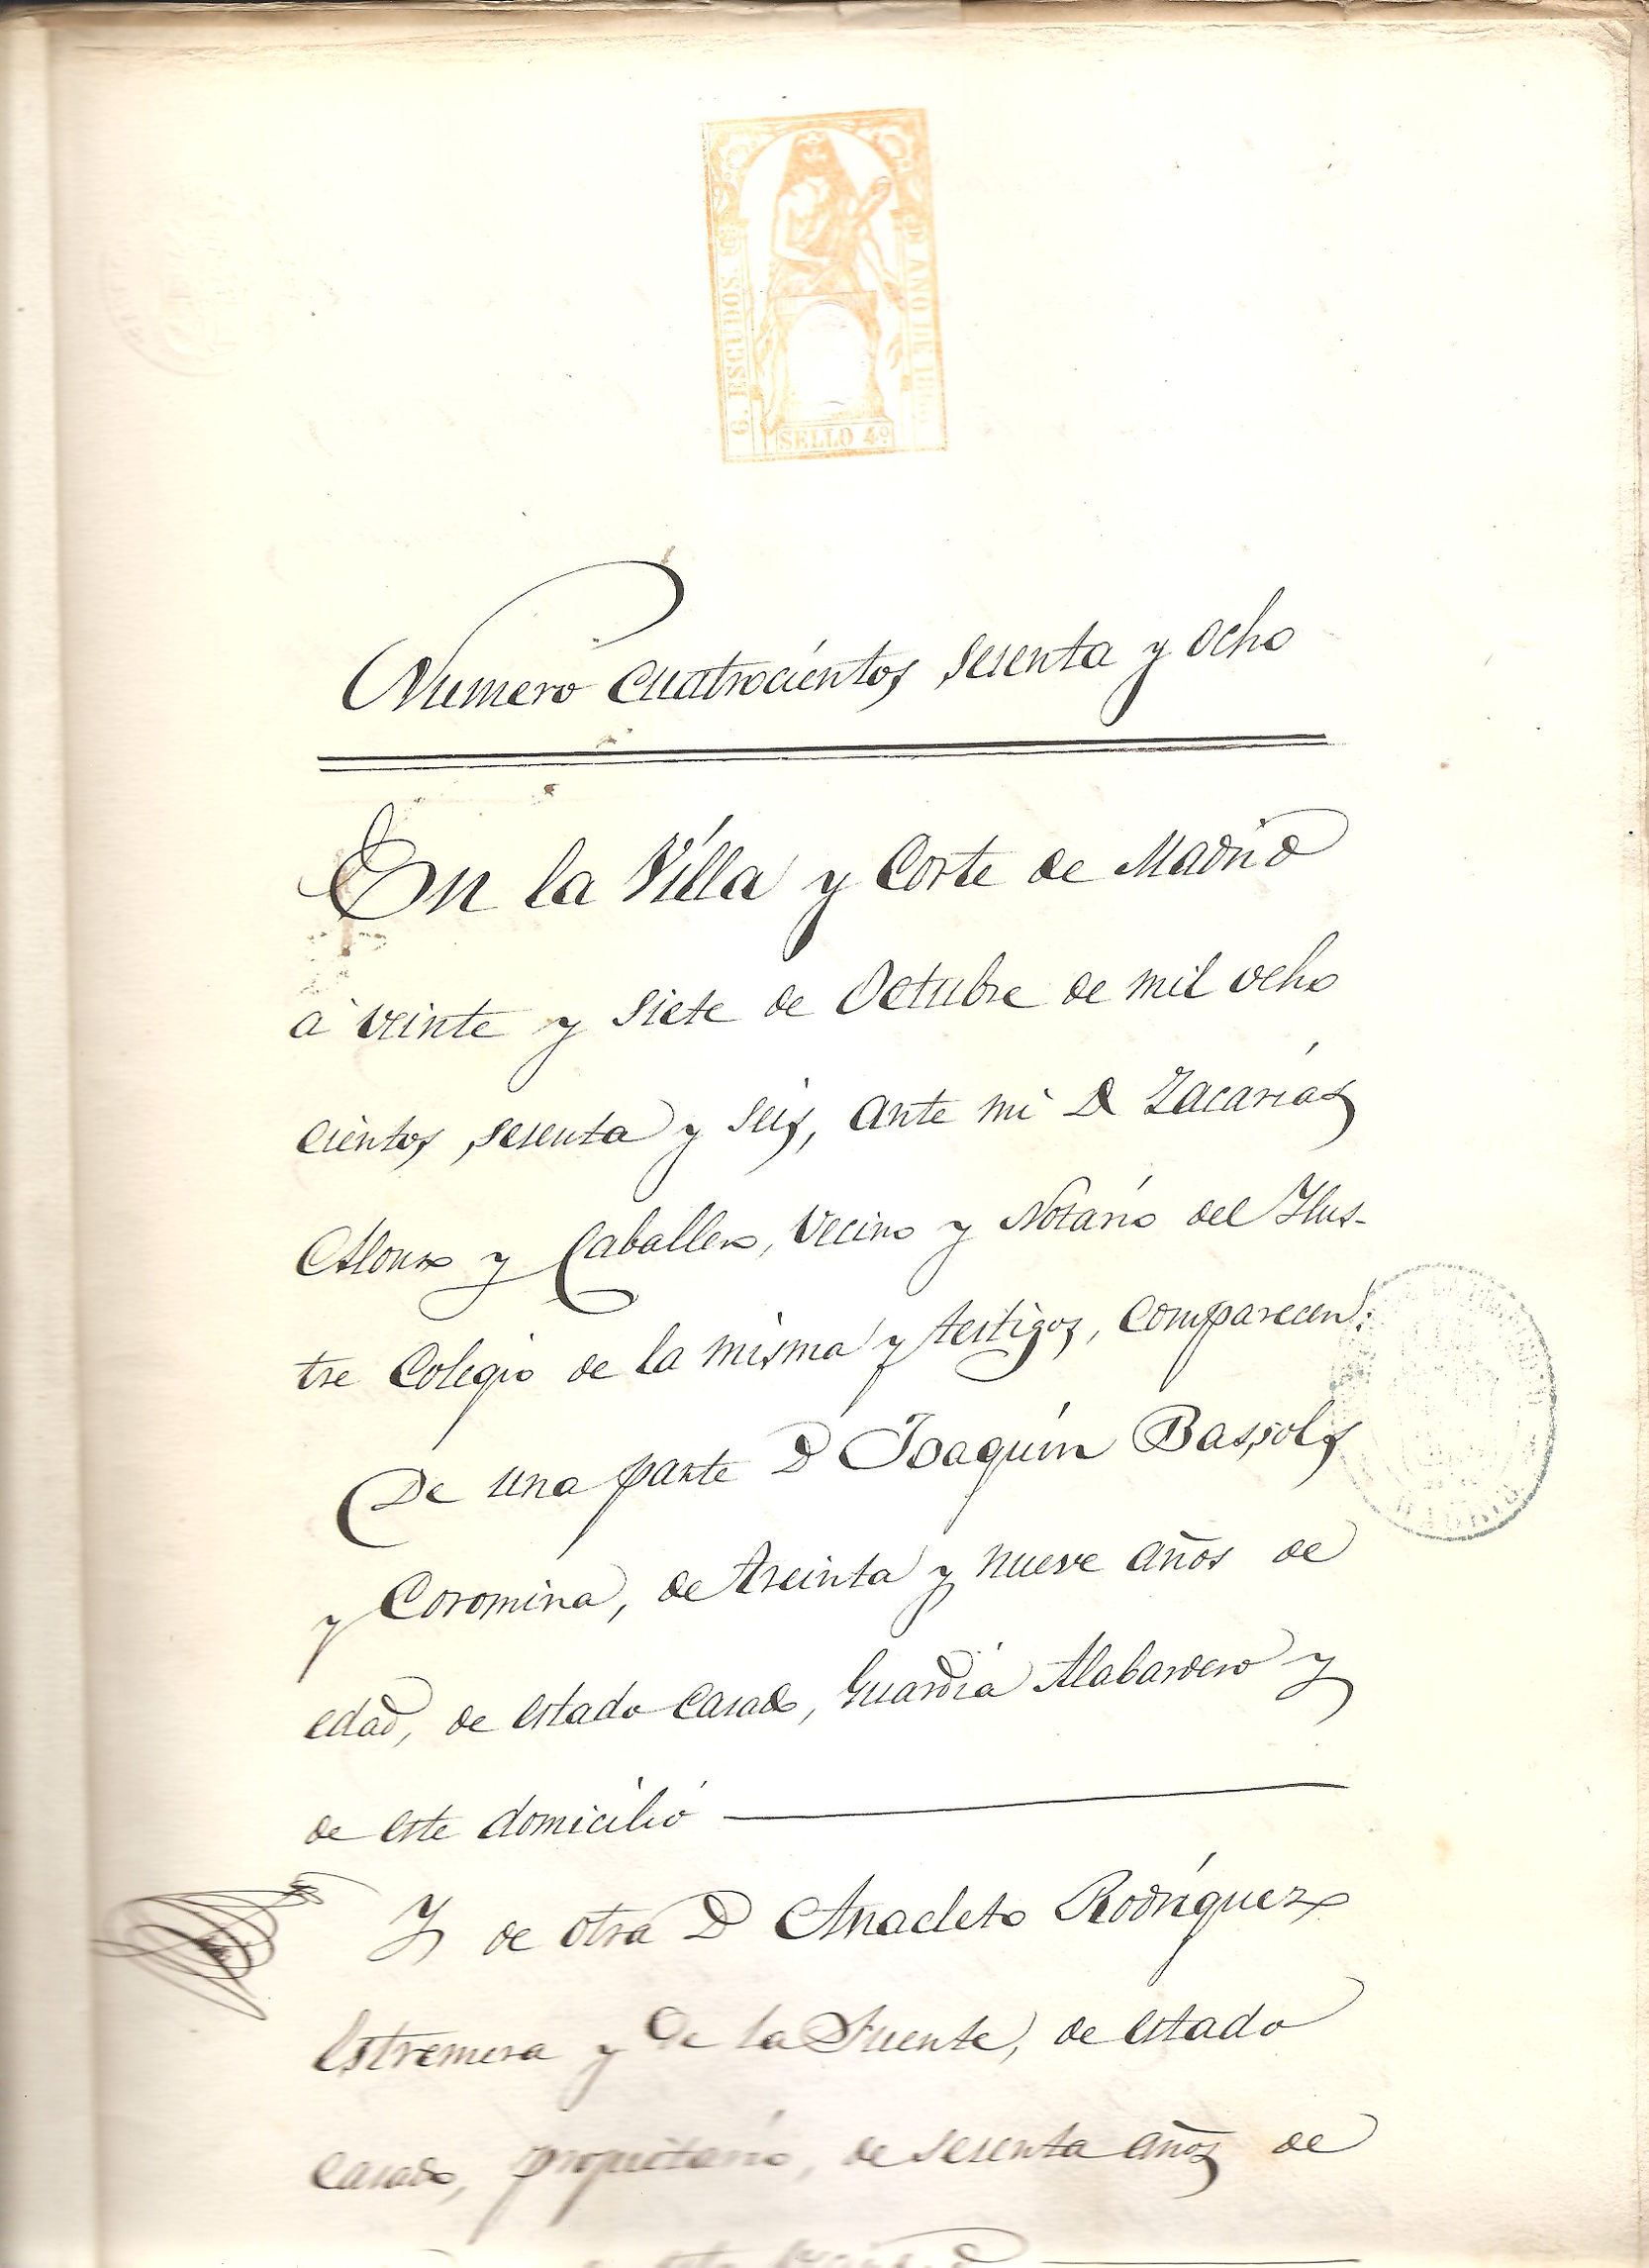 6. ESCUDOS.
AÑO DE 18
SELLO 4º
Numero Cuatrocientos sesenta y ocho
En la Villa y Corte de Madrid
a veinte y siete de Octubre de mil ocho
cientos sesenta y seis, ante mi D Zacarias
Alonso y Caballero, Vecino y Notario del Ilus-
tre Colegio de la misma y testigos, Comparecen:
De una parte D Joaquin Bassols
y Coromina, de treinta y nueve años de
edad, de estado casado, Guardia Alabardero y
de este domicilio
Y de otra D Anacleto Rodriguez
Estremera y de la Fuente, de estado
Casado, propietario, de sesenta años de
MADRID